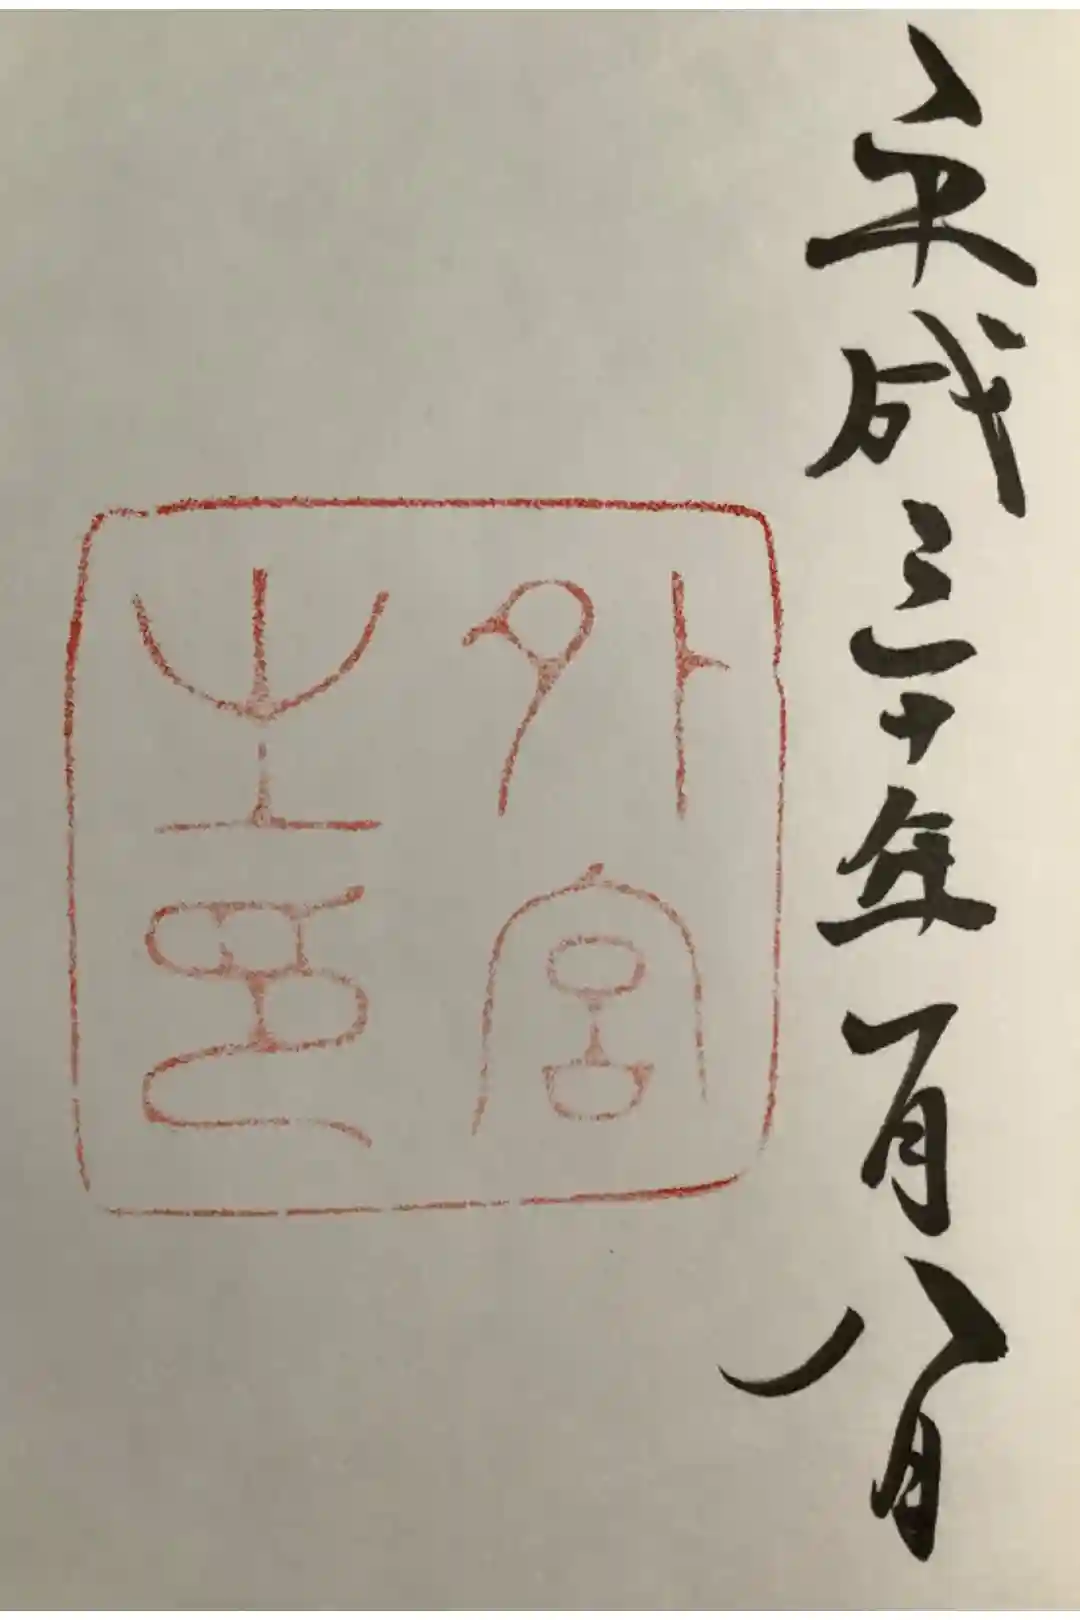 平成三十年一月八日
外宮之印